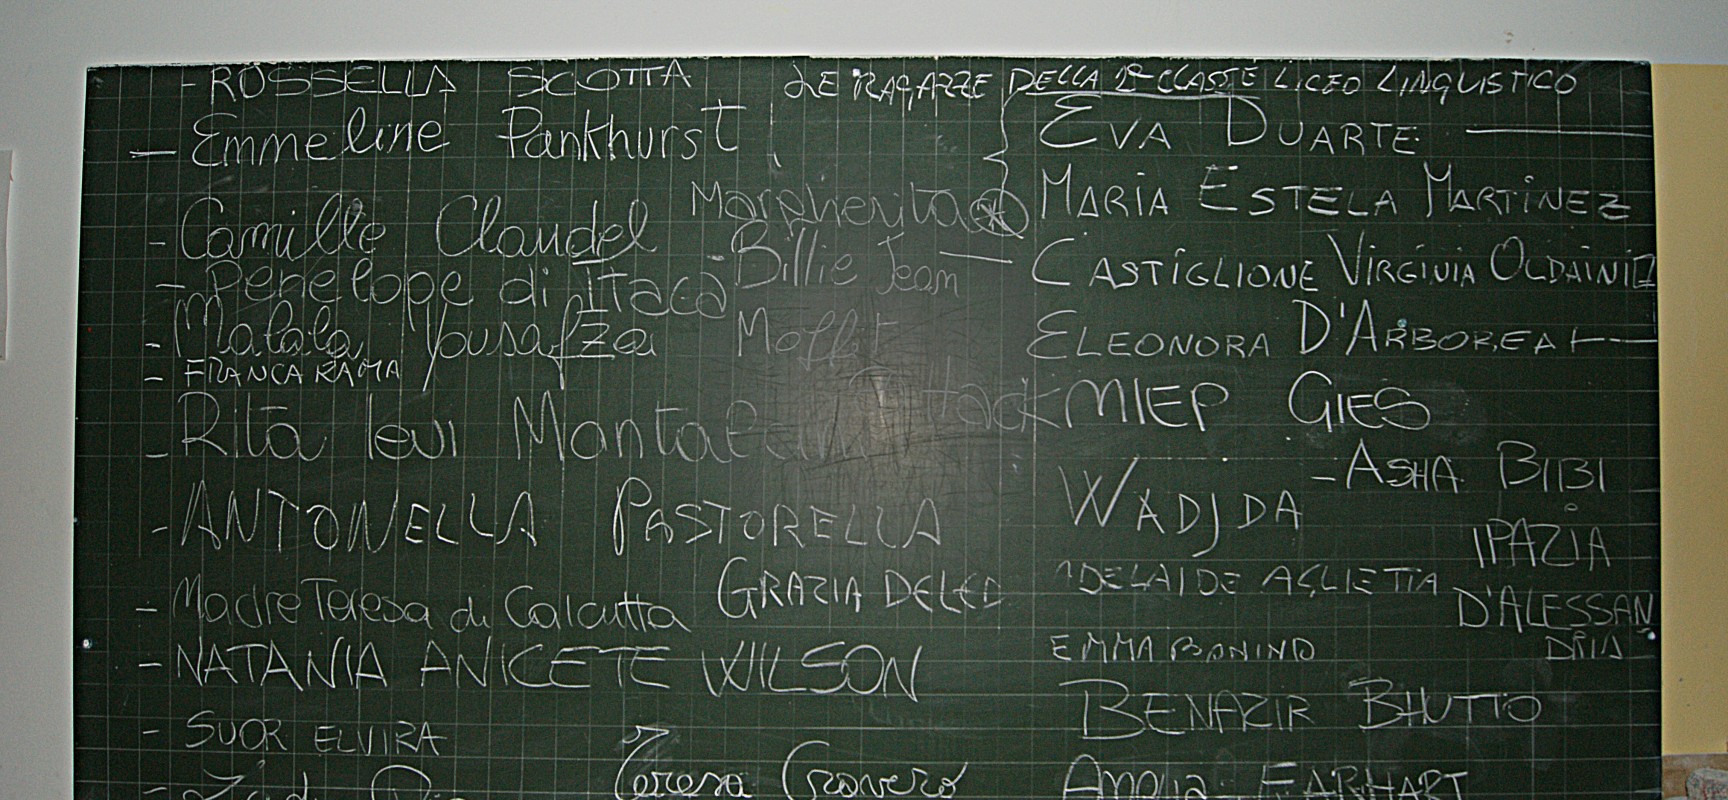 - ROSSELLA SCOTTA
LE RAGAZZE DELLA 1ª CLASSE LICEO LINGUISTICO
- Emmeline Pankhurst
EVA DUARTE
Margherita
MARIA ESTELA MARTINEZ
- Camille Claudel
- Billie Jean
CASTIGLIONE VIRGINIA OLDAINI
- Penelope di Itaca
- Malala Yousafzai
Moffit
ELEONORA D'ARBOREA
- FRANCA RAMA
Hack
MIEP GIES
- Rita levi Montalcini
- ASHA BIBI
WADJDA
- ANTONELLA PASTORELLA
IPAZIA
D'ALESSAN
DRIA
ADELAIDE AGLIETTA
- Madre Teresa di Calcutta
GRAZIA DELED
EMMA BONINO
- NATANIA ANICETE WILSON
BENAZIR BHUTTO
- SUOR ELVIRA
Teresa
EARHART